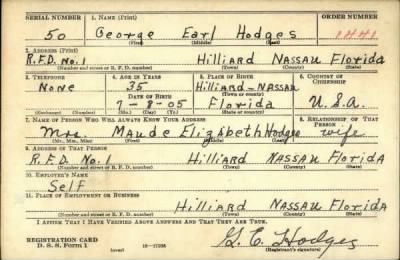 SERIAL NUMBER 1. NAME (Print) ORDER NUMBER
50 George Earl Hodges 1441
(First) (Middle) (Last)
2. ADDRESS (Print)
R.F.D. No. 1 Hilliard Nassau Florida
(Number and street or R. F. D. number) (Town) (County) (State)
3. TELEPHONE 4. AGE IN YEARS 5. PLACE OF BIRTH 6. COUNTRY OF CITIZENSHIP
None 35 Hilliard-Nassau
(Town or county)
DATE OF BIRTH
7-8-05 Florida U.S.A.
(Mo.) (Day) (Yr.) (State or country)
7. NAME OF PERSON WHO WILL ALWAYS KNOW YOUR ADDRESS 8. RELATIONSHIP OF THAT PERSON
Mrs. Maude Elizabeth Hodges wife
(Mr., Mrs., Miss) (First) (Middle) (Last)
9. ADDRESS OF THAT PERSON
R.F.D. No. 1 Hilliard Nassau Florida
(Number and street or R. F. D. number) (Town) (County) (State)
10. EMPLOYER'S NAME
Self
11. PLACE OF EMPLOYMENT OR BUSINESS
Hilliard Nassau Florida
(Number and street or R. F. D. number) (Town) (County) (State)
I AFFIRM THAT I HAVE VERIFIED ABOVE ANSWERS AND THAT THEY ARE TRUE.
REGISTRATION CARD
D. S. Form 1 (over) G. E. Hodges
(Registrant's signature)